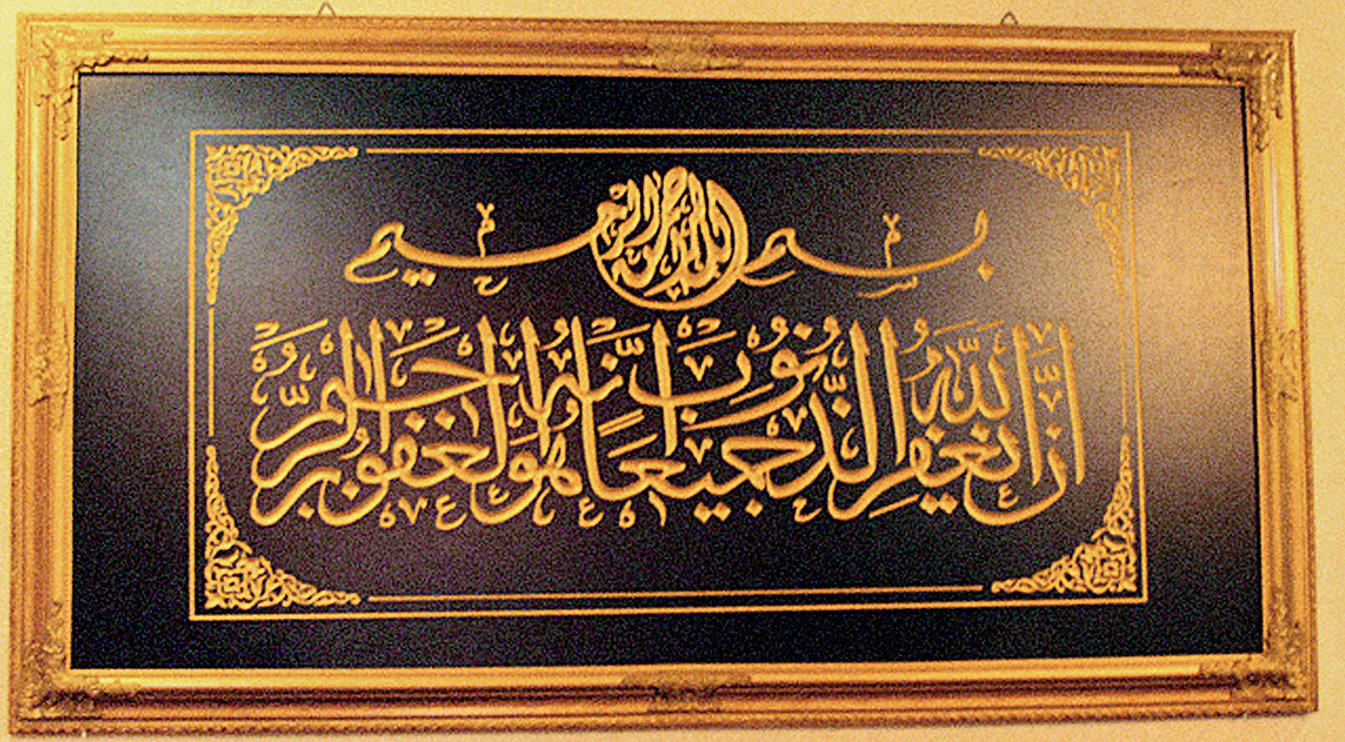 بسم الله الرحمن الرحيم
إن الله يغفر الذنوب جميعا إنه هو الغفور الرحيم